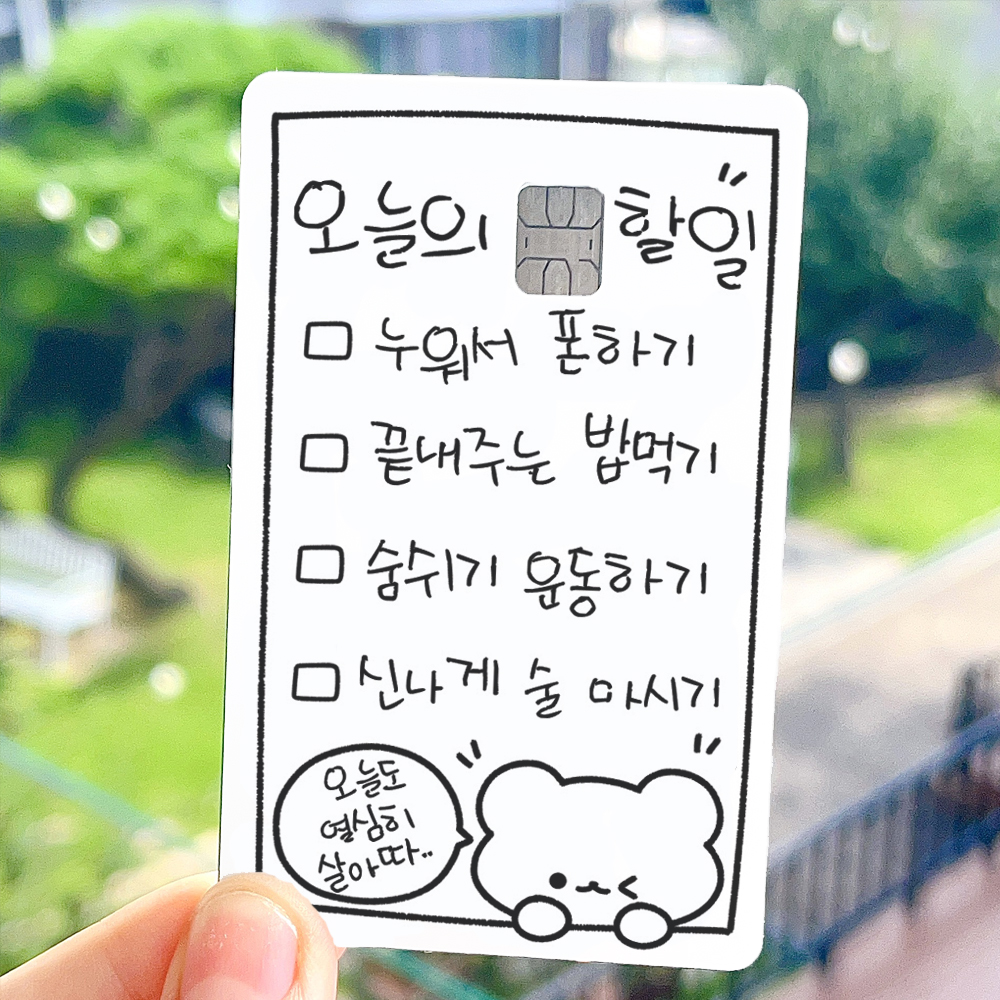 오늘의 할일
누워서 폰하기
끝내주는 밥먹기
숨쉬기 운동하기
신나게 술 마시기
오늘도
열심히
살아따..